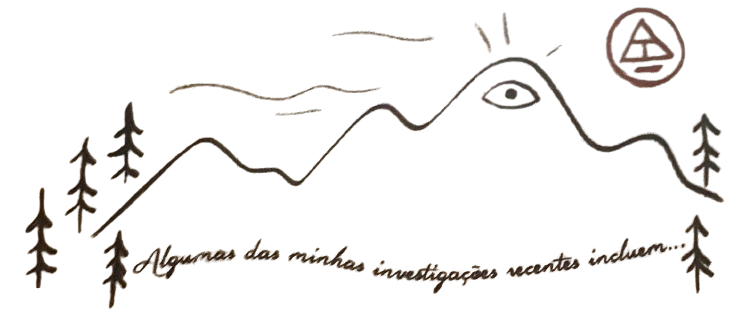 Algumas das minhas investigações recentes incluem...